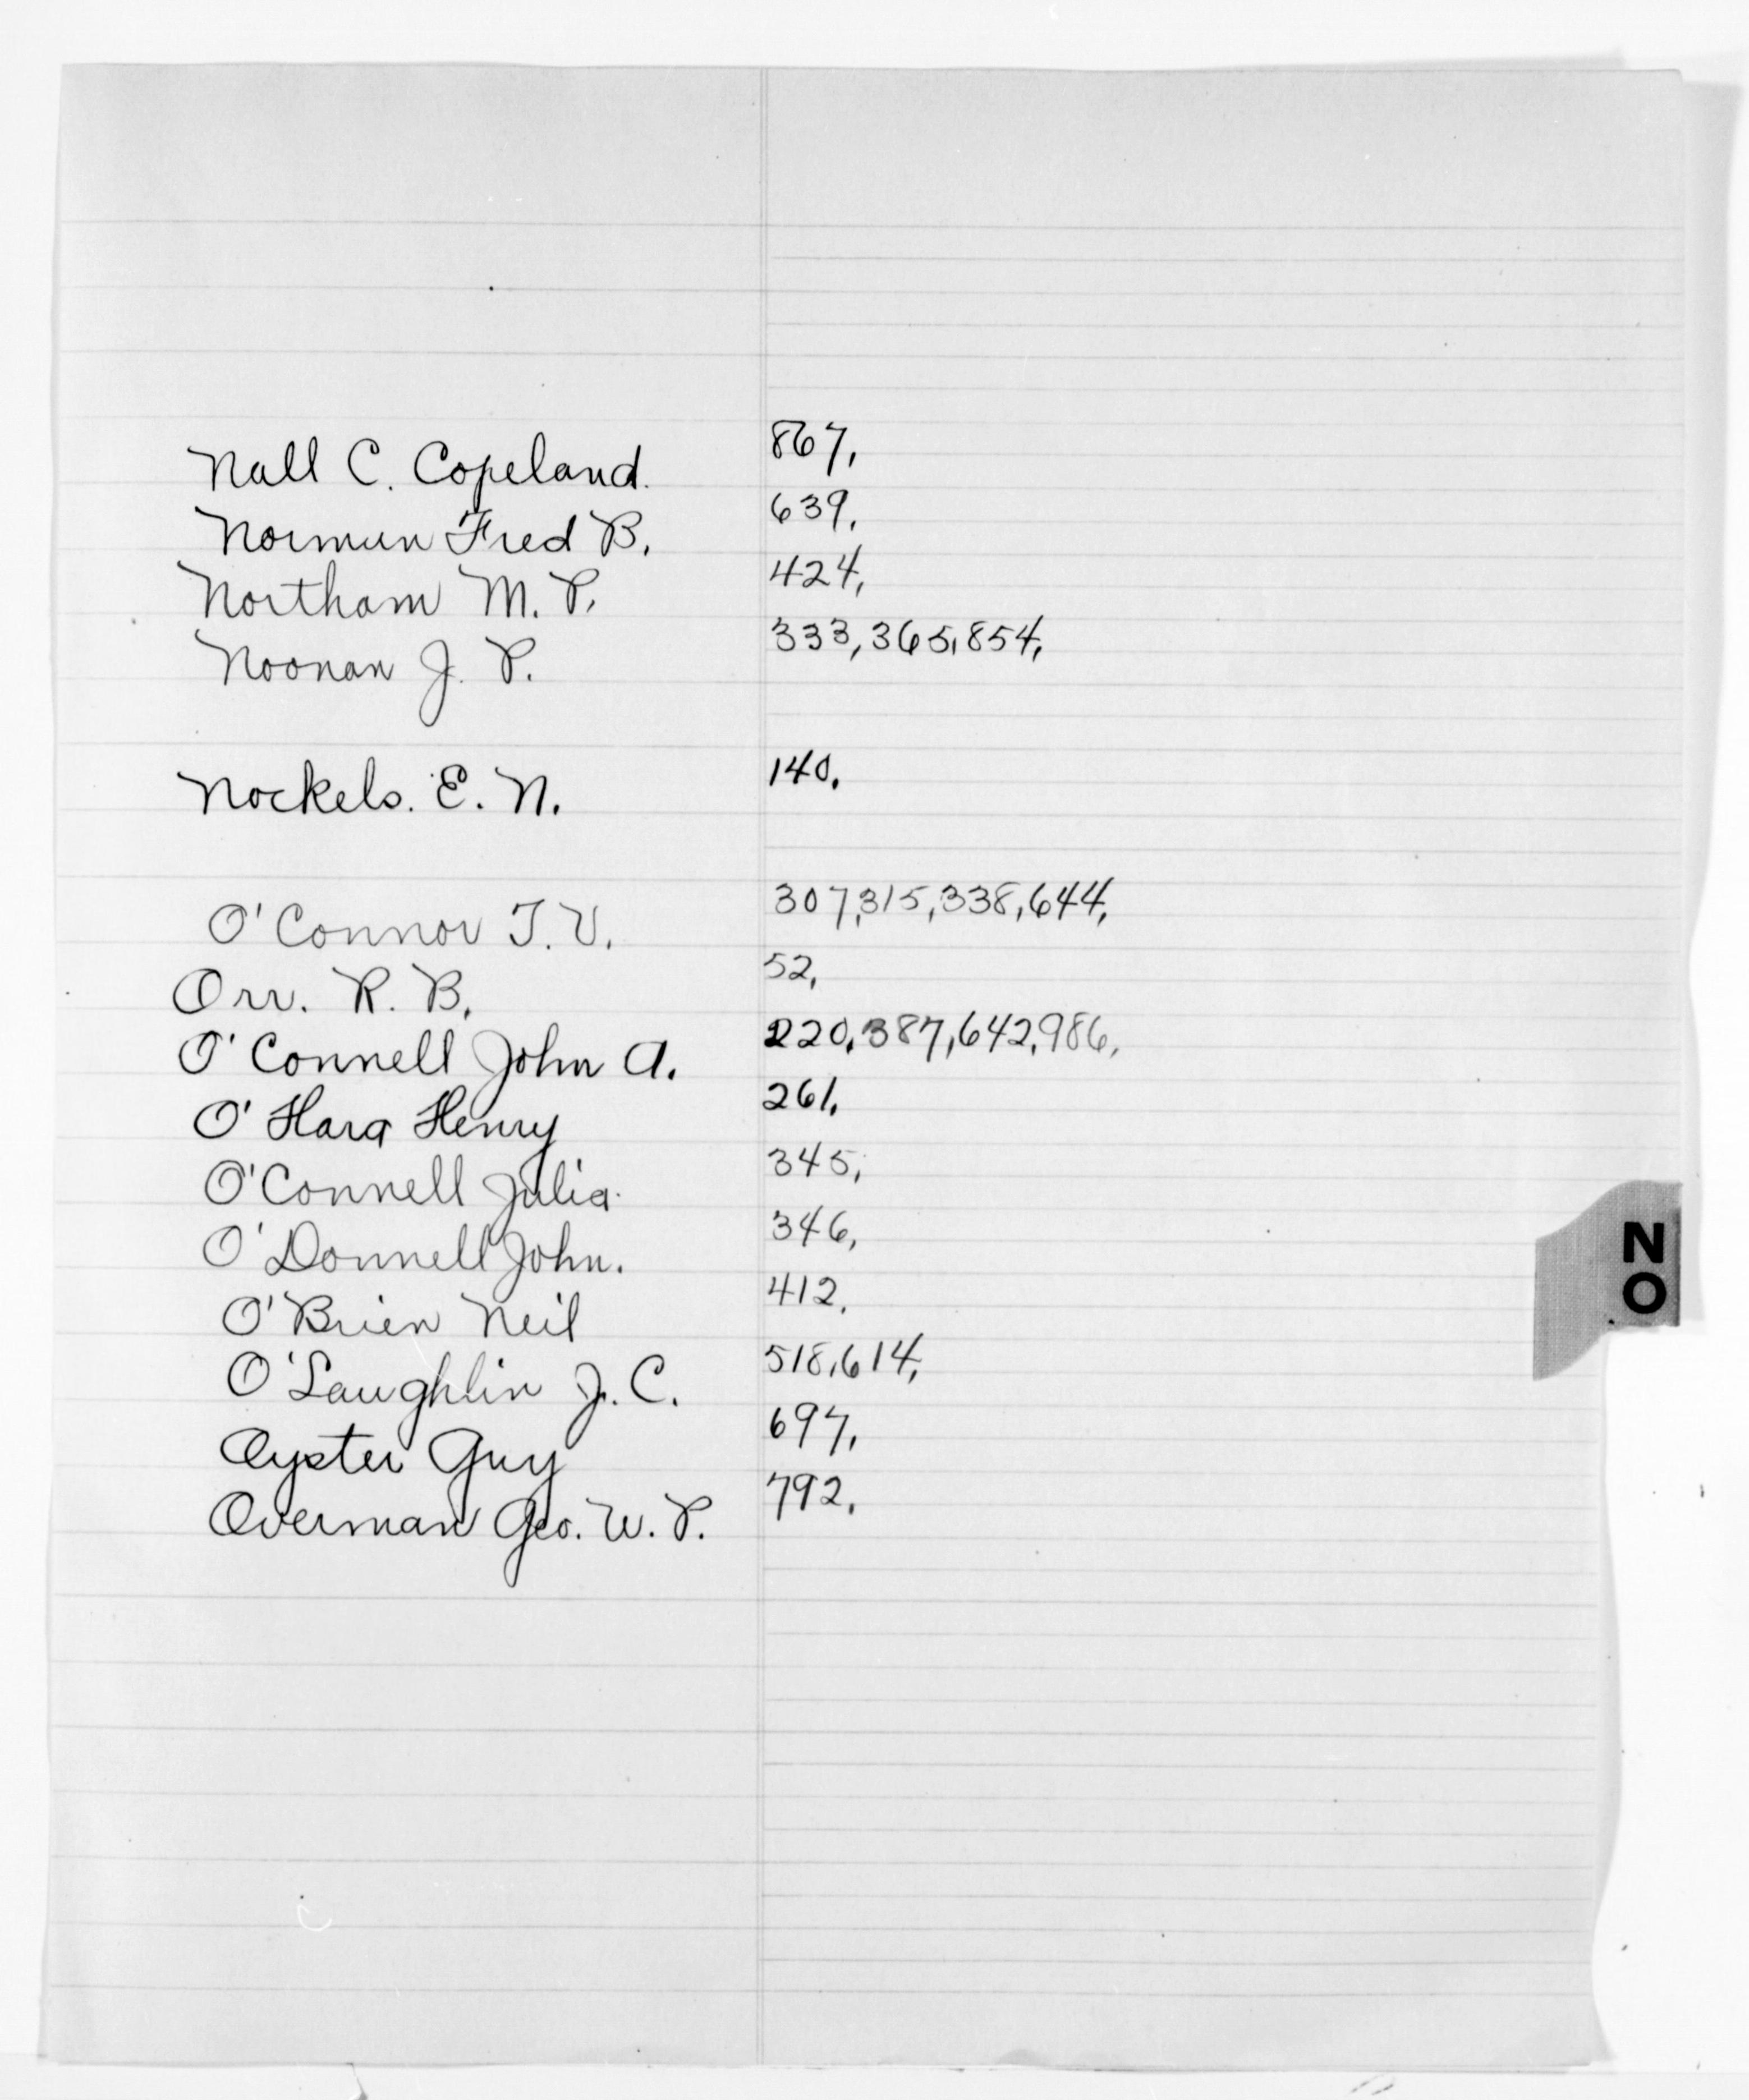 Nall C. Copeland. 867,
Norman Fred B. 639,
Northam M. P. 424,
Noonan J. P. 333,365,854,
Nockels. E. N. 140.
O'Connor T. V. 307,315,338,644,
Orr. R. B. 52,
O'Connell John A. 220,387,642,986,
O'Hara Henry 261,
O'Connell Julia. 345,
O'Donnell John. 346,
O'Brien Neil 412,
O'Laughlin J. C. 518,614,
Oyster Guy 697,
Overman Geo. W. P. 792,
N
O